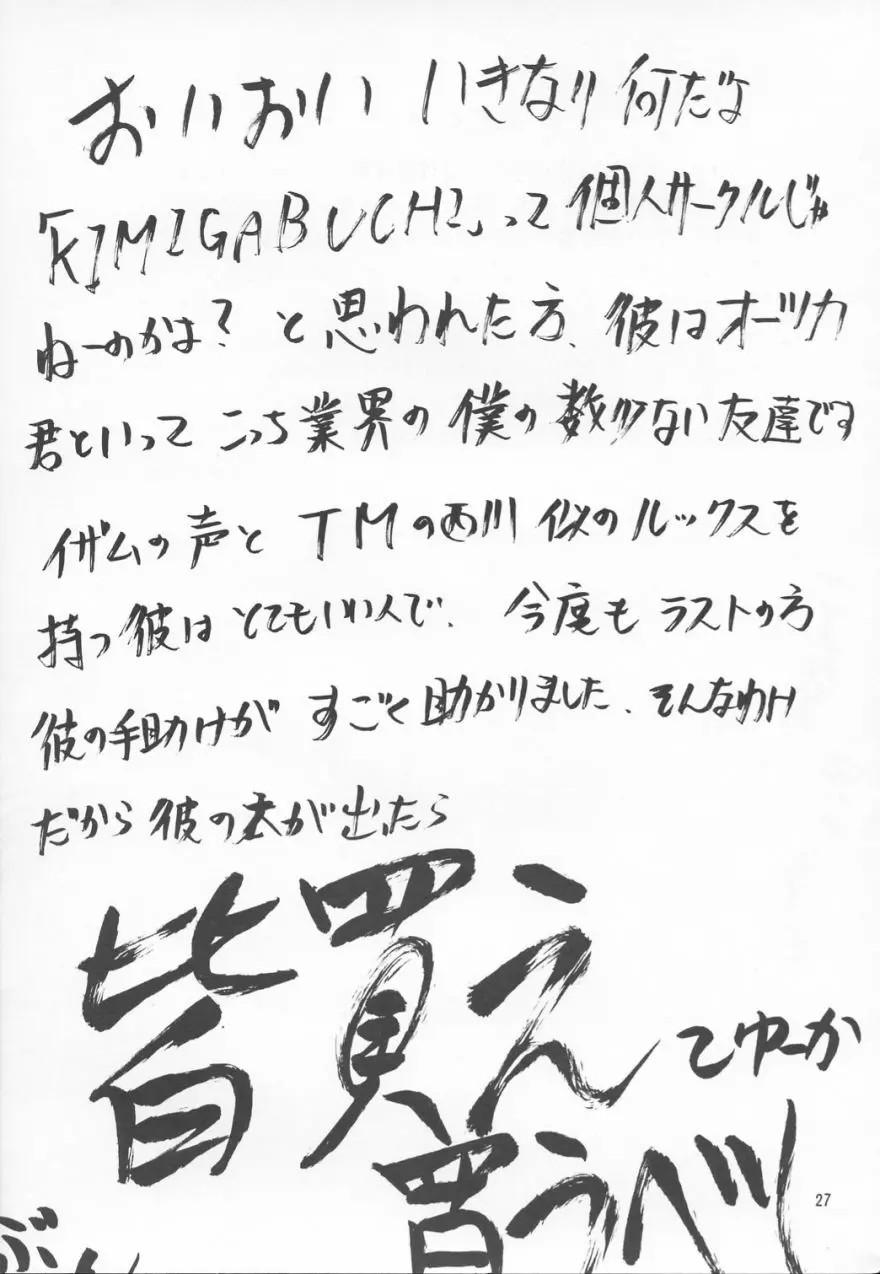 おいおい いきなり 何だよ
「KIMIGABUCHI」って個人サークルじゃ
ねーのかよ？と思われた方、彼はオーツカ
君といってこっち業界の僕の数少ない友達です
イザムの声とTMの西川似のルックスを
持つ彼はとてもいい人で、今度もラストの方
彼の手助けがすごく助かりました、そんなわけ
だから彼の本が出たら
皆買え
てゆーか
買うべし
27